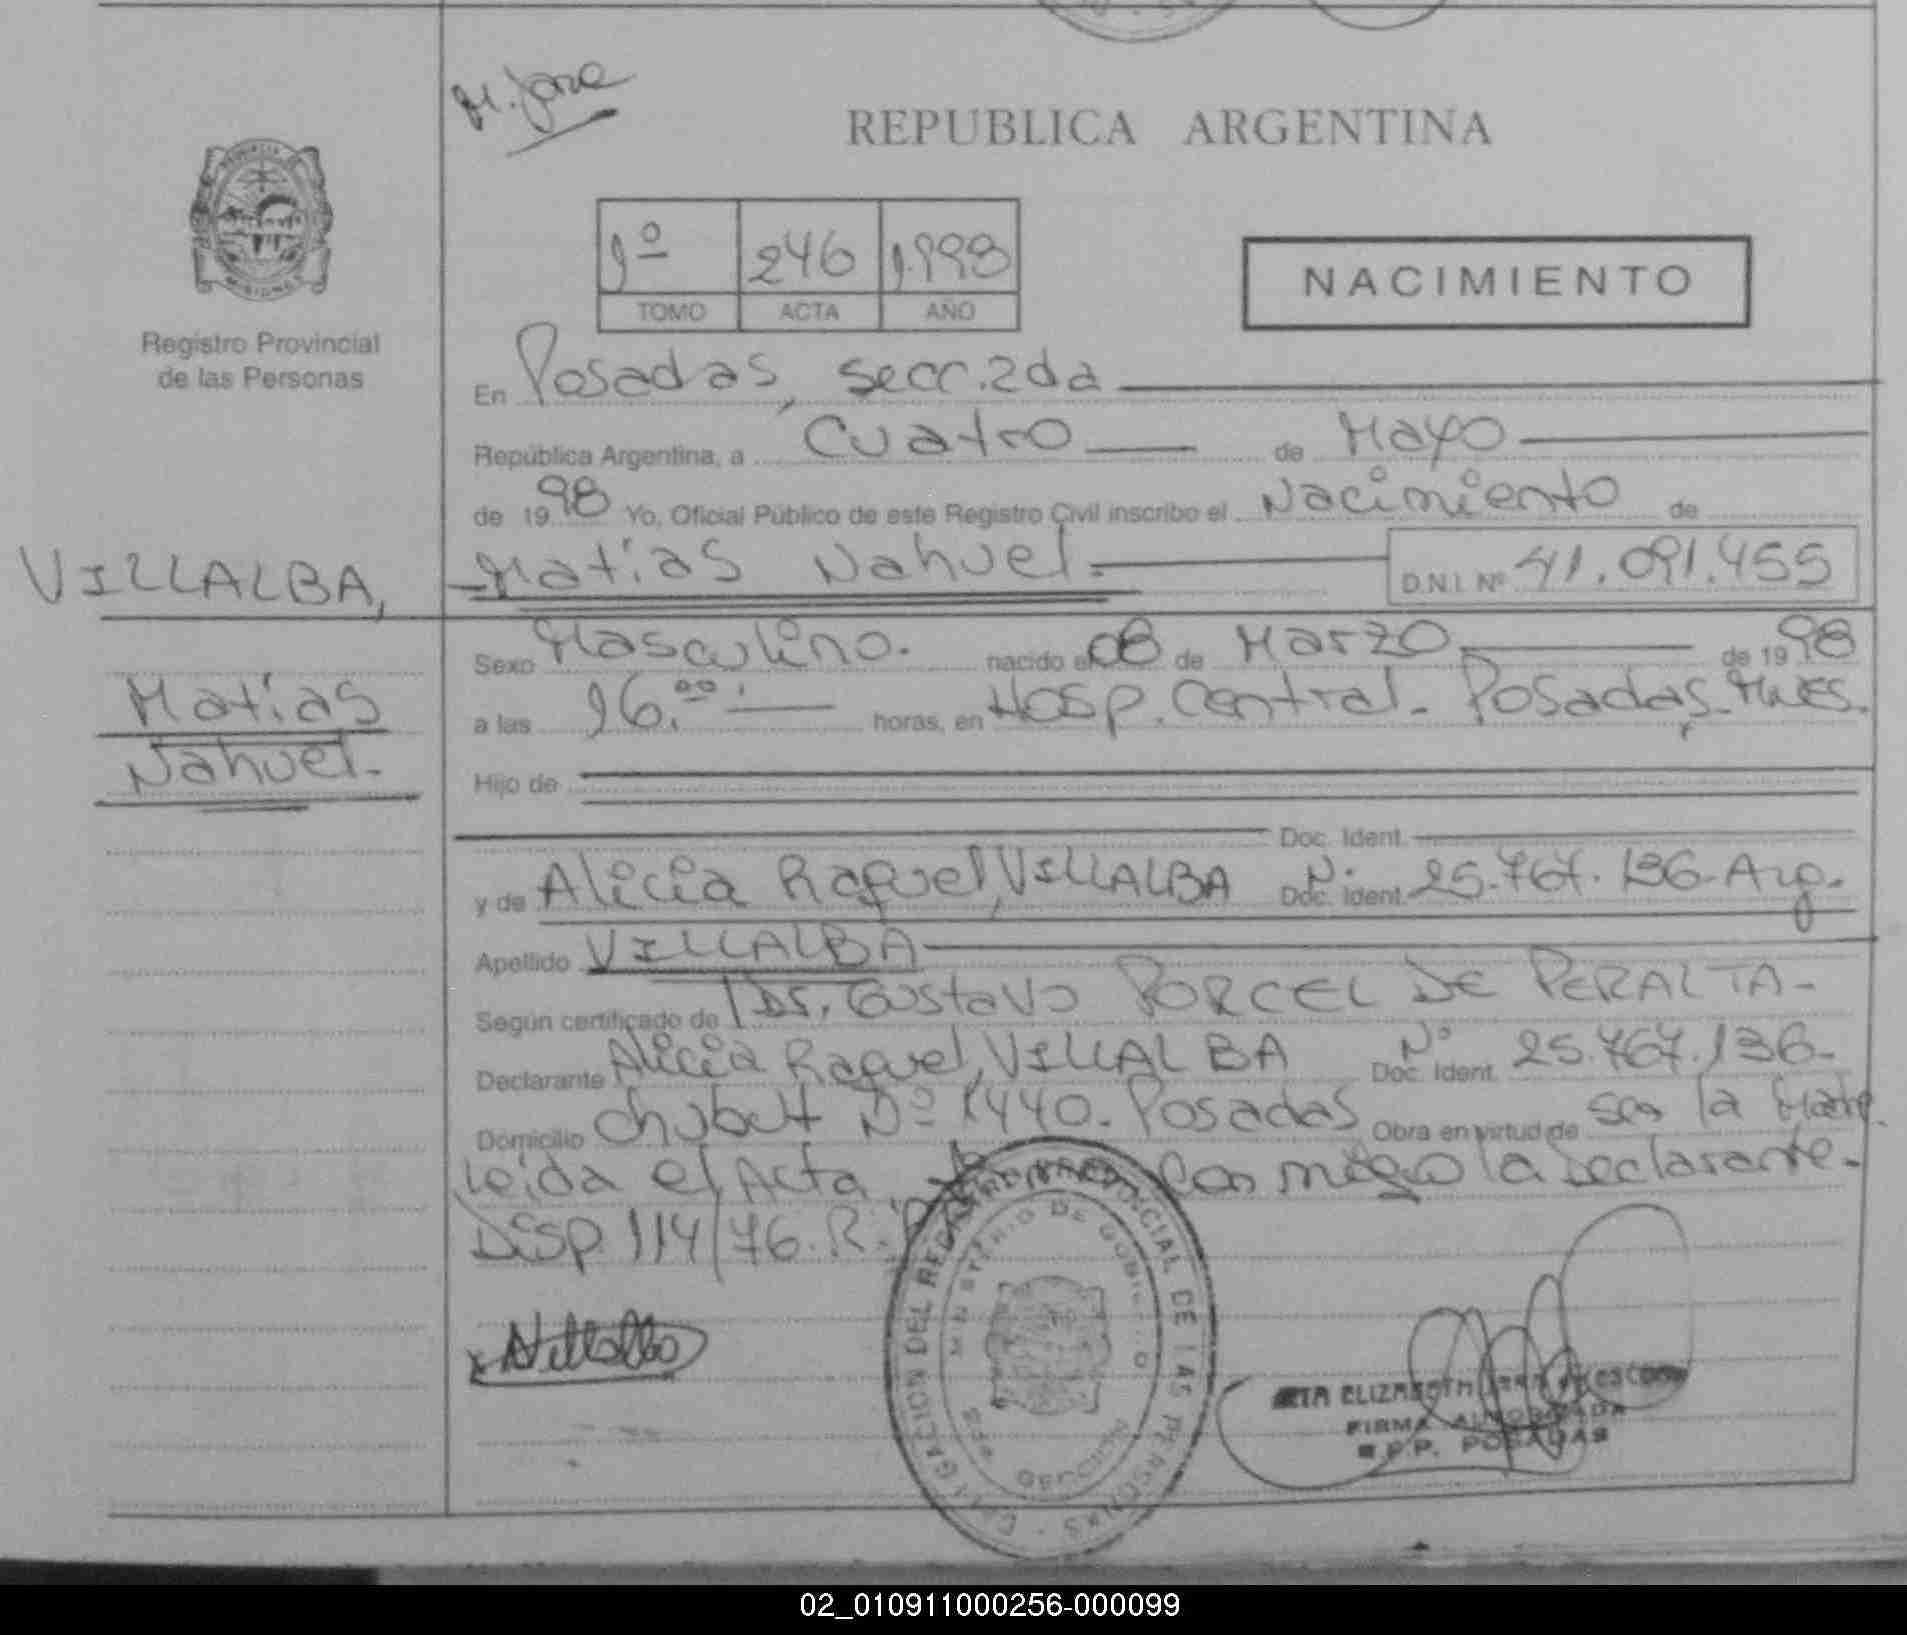 M. Jane
REPUBLICA ARGENTINA
1º 246 1.998
TOMO ACTA AÑO
NACIMIENTO
Registro Provincial
de las Personas
En Posadas, secc. 2da
República Argentina, a Cuatro de Mayo
de 1998 Yo, Oficial Público de este Registro Civil inscribo el Nacimiento de
VILLALBA,
Matías Nahuel.
D.N.I. Nº 41.091.455
Matías
Nahuel.-
Sexo Masculino. nacido el 08 de Marzo de 1998
a las 16.00 horas, en Hosp. Central. Posadas, Mnes.
Hijo de
Doc. Ident.
y de Alicia Raquel, VILLALBA Doc. Ident. N. 25.767.136- Arg.
Apellido VILLALBA
Según certificado de Dr. Gustavo PORCEL DE PERALTA-
Declarante Alicia Raquel, VILLALBA Doc. Ident. Nº 25.767.136-
Domicilio Chubut Nº 1440. Posadas Obra en virtud de ser la Madre.
Leída el Acta, con migo la Declarante.-
Disp. 114/76. R.
AVillalba
DEL REGISTRO PROVINCIAL DE LAS PERSONAS
MINISTERIO DE GOBIERNO
SECCION
ELIZABETH
FIRMA AUTORIZADA
R.P.P. POSADAS
02_010911000256-000099